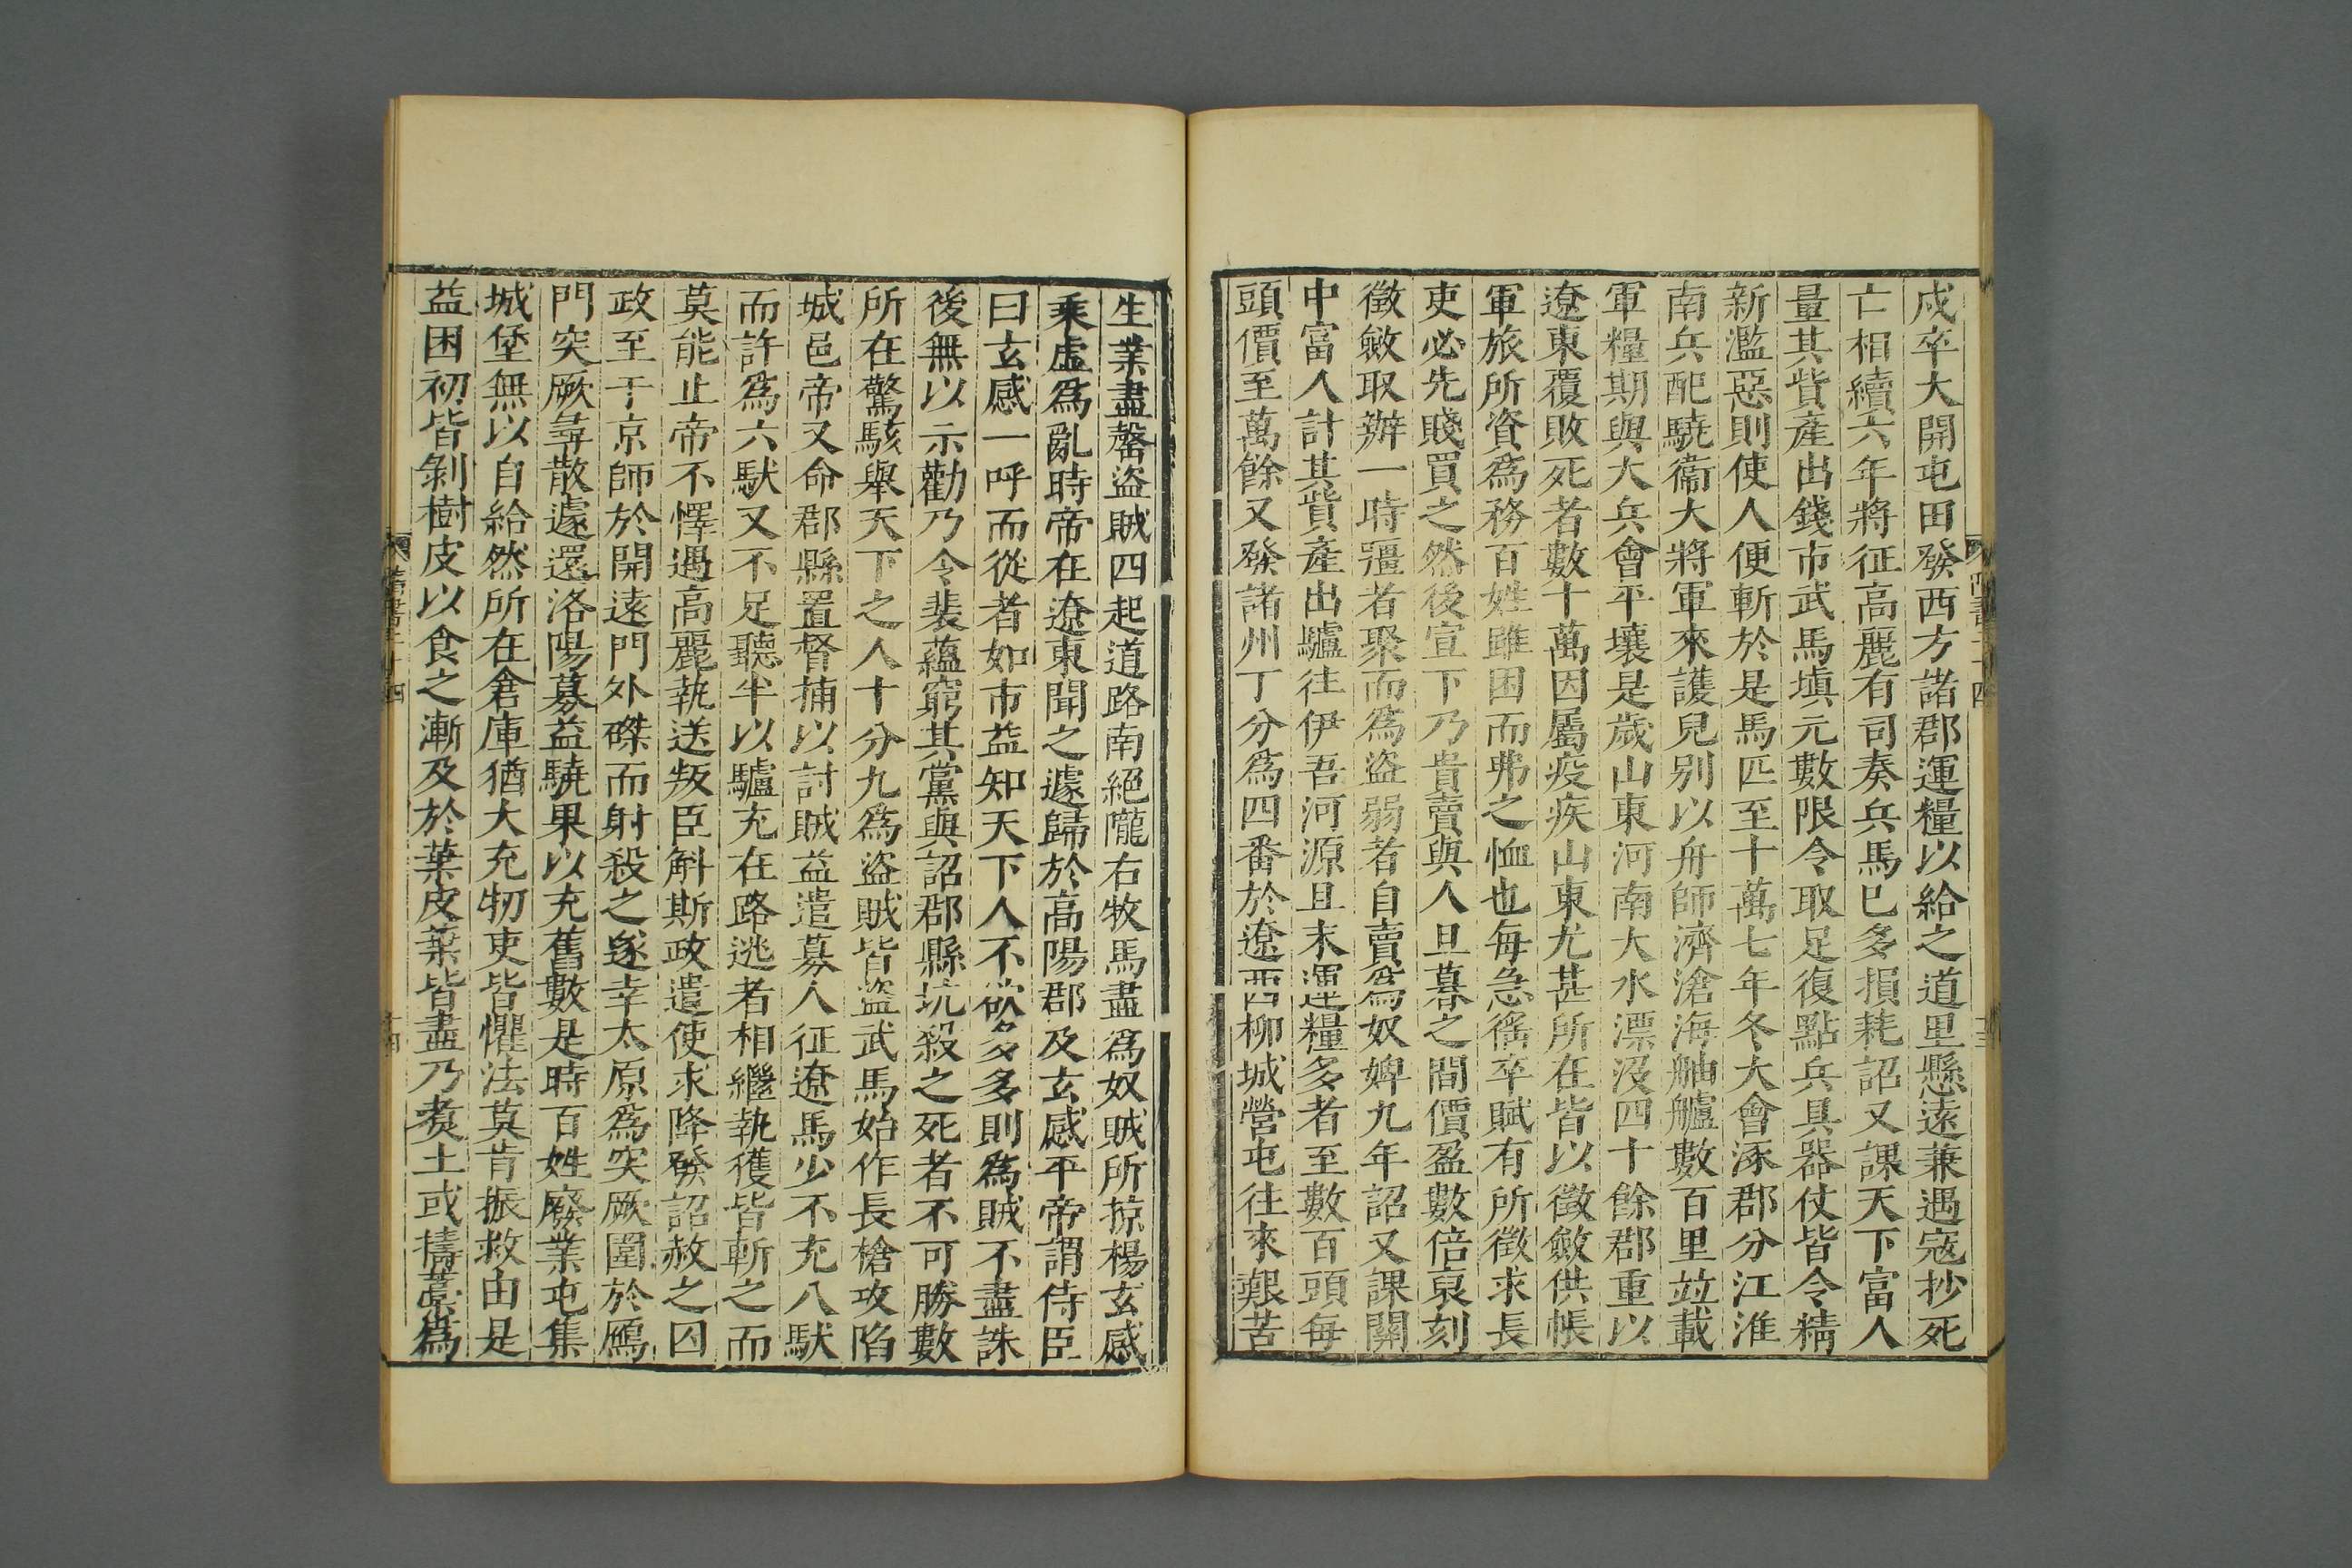 戍卒大開屯田發西方諸郡運糧以給之道里懸遠兼遇寇抄死
亡相續六年將征高麗有司奏兵馬已多損耗詔又課天下富人
量其貲產出錢市武馬塡元數限令取足復點兵具器仗皆令精
新濫惡則使人便斬於是馬匹至十萬七年冬大會涿郡分江淮
南兵配驍衞大將軍來護兒别以舟師濟滄海舳艫數百里竝載
軍糧期與大兵會平壤是歲山東河南大水漂沒四十餘郡重以
遼東覆敗死者數十萬因屬疫疾山東尤甚所在皆以徵斂供帳
軍旅所資爲務百姓雖困而弗之恤也每急徭卒賦有所徵求長
吏必先賤買之然後宣下乃貴賣與人旦暮之間價盈數倍裒刻
徵斂取辦一時彊者聚而爲盜弱者自賣爲奴婢九年詔又課關
中富人計其貲產出驢往伊吾河源且末運糧多者至數百頭每
頭價至萬餘又發諸州丁分爲四番於遼西柳城營屯往來艱苦
生業盡罄盜賊四起道路南絕隴右牧馬盡爲奴賊所掠楊玄感
乘虛爲亂時帝在遼東聞之遽歸於高陽郡及玄感平帝謂侍臣
曰玄感一呼而從者如市益知天下人不欲多多則爲賊不盡誅
後無以示勸乃令裴蘊窮其黨與詔郡縣坑殺之死者不可勝數
所在驚駭舉天下之人十分九爲盜賊皆盜武馬始作長槍攻陷
城邑帝又命郡縣置督捕以討賊益遣募人征遼馬少不充八馱
而許爲六馱又不足聽半以驢充在路逃者相繼執獲皆斬之而
莫能止帝不懌遇高麗執送叛臣斛斯政遣使求降發詔赦之囚
政至于京師於開遠門外磔而射殺之遂幸太原爲突厥圍於鴈
門突厥尋散遽還洛陽募益驍果以充舊數是時百姓廢業屯集
城堡無以自給然所在倉庫猶大充牣吏皆懼法莫肯振救由是
益困初皆剝樹皮以食之漸及於葉皮葉皆盡乃煑土或擣藁爲